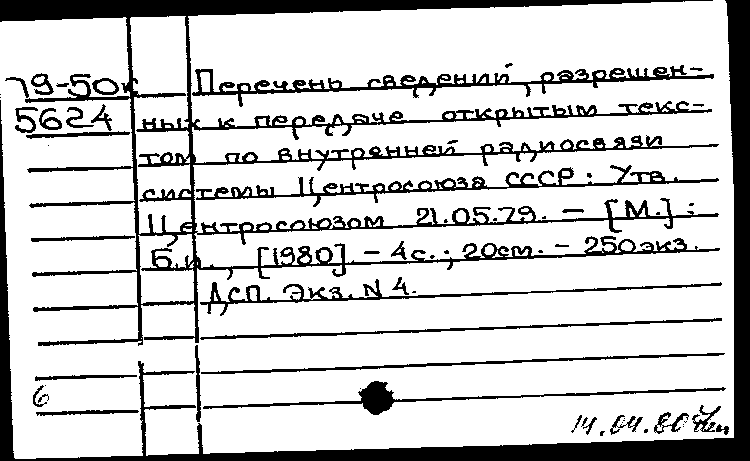 79-50к Перечень сведений, разрешен-
5624 ных к передаче открытым текс-
том по внутренней радиосвязи
системы Центросоюза СССР: Утв.
Центросоюзом 21.05.79. - [М.]:
Б.и., [1980]. - 4с.; 20см. - 250экз.
ДСП. Экз. N 4.
6
14.04.80